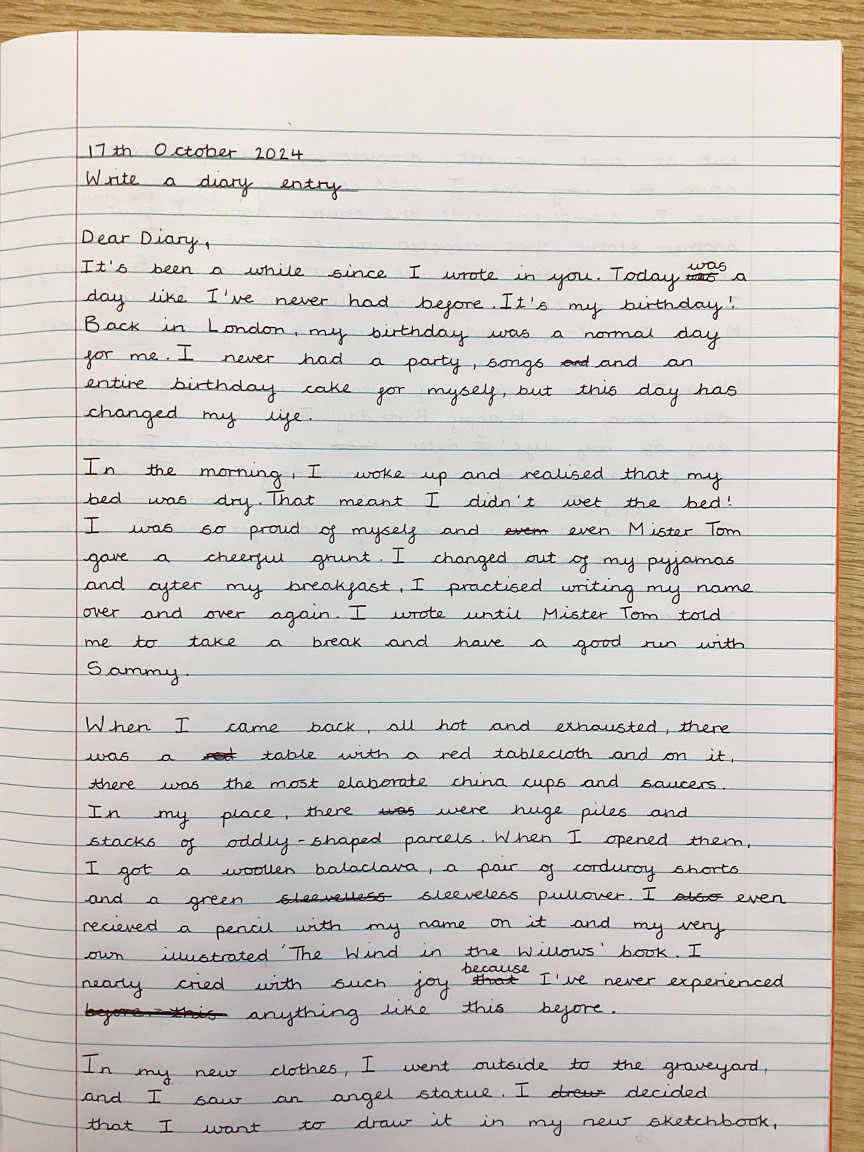 17th October 2024
Write a diary entry
Dear Diary,
was
It's been a while since I wrote in you. Today has a
day like I've never had before. It's my birthday!
Back in London, my birthday was a normal day
for me. I never had a party, songs and and an
entire birthday cake for myself, but this day has
changed my life.
In the morning, I woke up and realised that my
bed was dry. That meant I didn't wet the bed!
I was so proud of myself and evem even Mister Tom
gave a cheerful grunt. I changed out of my pyjamas
and after my breakfast, I practised writing my name
over and over again. I wrote until Mister Tom told
me to take a break and have a good run with
Sammy.
When I came back, all hot and exhausted, there
was a red table with a red tablecloth and on it,
there was the most elaborate china cups and saucers.
In my place, there was were huge piles and
stacks of oddly-shaped parcels. When I opened them,
I got a woollen balaclava, a pair of corduroy shorts
and a green sleevelless sleeveless pullover. I also even
recieved a pencil with my name on it and my very
own illustrated 'The Wind in the Willows' book. I
because
nearly cried with such joy that I've never experienced
before this anything like this before.
In my new clothes, I went outside to the graveyard,
and I saw an angel statue. I drew decided
that I want to draw it in my new sketchbook,